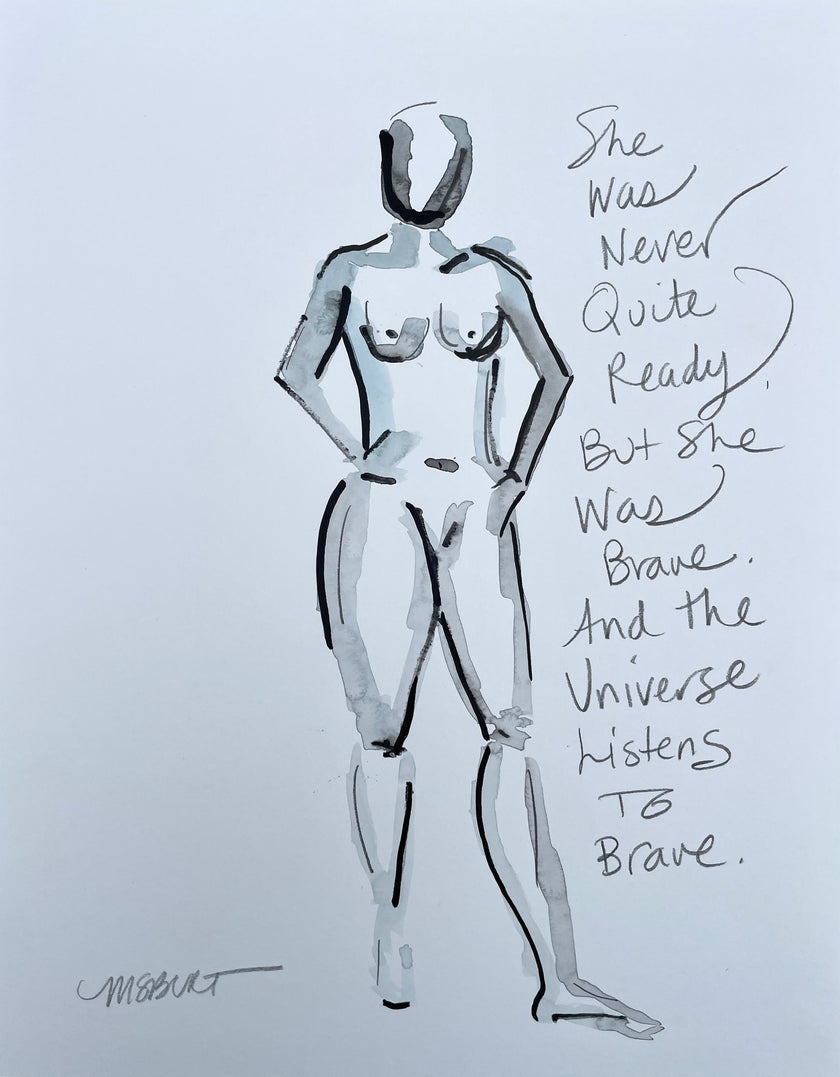 She
Was
Never
Quite
Ready.
But She
Was
Brave.
And the
Universe
Listens
To
Brave.
MSBURT